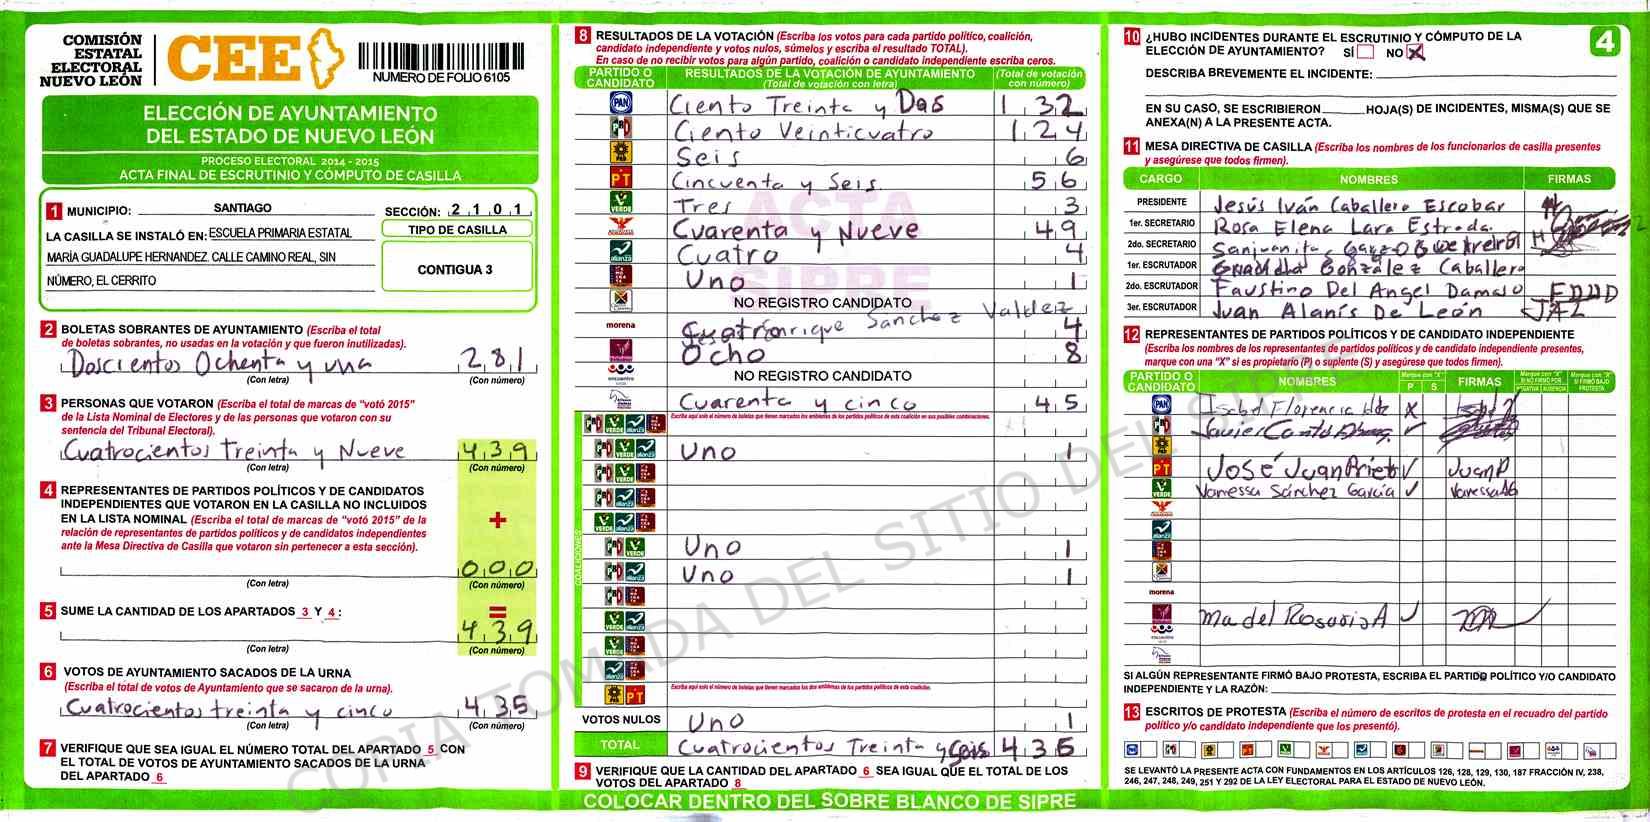 COMISIÓN
ESTATAL
ELECTORAL
NUEVO LEÓN
CEE
NUMERO DE FOLIO 6105
ELECCIÓN DE AYUNTAMIENTO
DEL ESTADO DE NUEVO LEÓN
PROCESO ELECTORAL 2014 - 2015
ACTA FINAL DE ESCRUTINIO Y CÓMPUTO DE CASILLA
1 MUNICIPIO: SANTIAGO SECCIÓN: 2 1 0 1
LA CASILLA SE INSTALÓ EN: ESCUELA PRIMARIA ESTATAL
MARÍA GUADALUPE HERNANDEZ. CALLE CAMINO REAL, SIN
NÚMERO, EL CERRITO
TIPO DE CASILLA
CONTIGUA 3
2 BOLETAS SOBRANTES DE AYUNTAMIENTO (Escriba el total
de boletas sobrantes, no usadas en la votación y que fueron inutilizadas).
Doscientos Ochenta y una 2 8 1
(Con letra) (Con número)
3 PERSONAS QUE VOTARON (Escriba el total de marcas de "votó 2015"
de la Lista Nominal de Electores y de las personas que votaron con su
sentencia del Tribunal Electoral).
Cuatrocientos Treinta y Nueve 4 3 9
(Con letra) (Con número)
4 REPRESENTANTES DE PARTIDOS POLÍTICOS Y DE CANDIDATOS
INDEPENDIENTES QUE VOTARON EN LA CASILLA NO INCLUIDOS
EN LA LISTA NOMINAL (Escriba el total de marcas de "votó 2015" de la
relación de representantes de partidos políticos y de candidatos independientes
ante la Mesa Directiva de Casilla que votaron sin pertenecer a esta sección).
+
0 0 0
(Con letra) (Con número)
5 SUME LA CANTIDAD DE LOS APARTADOS 3 Y 4 :
=
4 3 9
(Con letra) (Con número)
6 VOTOS DE AYUNTAMIENTO SACADOS DE LA URNA
(Escriba el total de votos de Ayuntamiento que se sacaron de la urna).
Cuatrocientos treinta y cinco 4 3 5
(Con letra) (Con número)
7 VERIFIQUE QUE SEA IGUAL EL NÚMERO TOTAL DEL APARTADO 5 CON
EL TOTAL DE VOTOS DE AYUNTAMIENTO SACADOS DE LA URNA
DEL APARTADO 6
8 RESULTADOS DE LA VOTACIÓN (Escriba los votos para cada partido político, coalición,
candidato independiente y votos nulos, súmelos y escriba el resultado TOTAL).
En caso de no recibir votos para algún partido, coalición o candidato independiente escriba ceros.
PARTIDO O CANDIDATO RESULTADOS DE LA VOTACIÓN DE AYUNTAMIENTO (Total de votación con letra) (Total de votación con número)
PAN Ciento Treinta y Dos 1 3 2
PRI Ciento Veinticuatro 1 2 4
PRD Seis 6
PT Cincuenta y Seis 5 6
VERDE Tres 3
Cuarenta y Nueve 4 9
alianza Cuatro 4
Uno 1
NO REGISTRO CANDIDATO
Enrique Sanchez Valdez
morena Cuatro 4
Ocho 8
encuentro NO REGISTRO CANDIDATO
Cuarenta y cinco 4 5
Escriba aquí solo el número de boletas que tienen marcados los emblemas de los partidos políticos de esta coalición en sus posibles combinaciones.
Uno 1
Uno 1
Uno 1
COALICIONES
Escriba aquí solo el número de boletas que tienen marcados los dos emblemas de los partidos políticos de esta coalición.
VOTOS NULOS Uno 1
TOTAL Cuatrocientos Treinta y Seis 4 3 6
9 VERIFIQUE QUE LA CANTIDAD DEL APARTADO 6 SEA IGUAL QUE EL TOTAL DE LOS
VOTOS DEL APARTADO 8
COLOCAR DENTRO DEL SOBRE BLANCO DE SIPRE
ACTA
SIPRE
COPIA TOMADA DEL SITIO DEL SIPRE
10 ¿HUBO INCIDENTES DURANTE EL ESCRUTINIO Y CÓMPUTO DE LA
ELECCIÓN DE AYUNTAMIENTO? SÍ NO X
4
DESCRIBA BREVEMENTE EL INCIDENTE:
EN SU CASO, SE ESCRIBIERON HOJA(S) DE INCIDENTES, MISMA(S) QUE SE
ANEXA(N) A LA PRESENTE ACTA.
11 MESA DIRECTIVA DE CASILLA (Escriba los nombres de los funcionarios de casilla presentes
y asegúrese que todos firmen).
CARGO NOMBRES FIRMAS
PRESIDENTE Jesús Iván Caballero Escobar
1er. SECRETARIO Rosa Elena Lara Estrada.
2do. SECRETARIO Sanjuanita
1er. ESCRUTADOR González Caballero
2do. ESCRUTADOR Faustino Del Angel Damaso FDAD
3er. ESCRUTADOR Juan Alanís De León JAL
12 REPRESENTANTES DE PARTIDOS POLÍTICOS Y DE CANDIDATO INDEPENDIENTE
(Escriba los nombres de los representantes de partidos políticos y de candidato independiente presentes,
marque con una "X" si es propietario (P) o suplente (S) y asegúrese que todos firmen).
PARTIDO O CANDIDATO NOMBRES Marque con "X" P S FIRMAS Marque con "X" SI NO FIRMÓ POR NEGATIVA AUSENCIA Marque con "X" SI FIRMÓ BAJO PROTESTA
PAN Isabel Florencia X
PRI Javier Cantú
PRD
PT José Juan Prieto Juan P
VERDE Vanessa Sánchez García
morena
Ma del Rosario A
SI ALGÚN REPRESENTANTE FIRMÓ BAJO PROTESTA, ESCRIBA EL PARTIDO POLÍTICO Y/O CANDIDATO
INDEPENDIENTE Y LA RAZÓN:
13 ESCRITOS DE PROTESTA (Escriba el número de escritos de protesta en el recuadro del partido
político y/o candidato independiente que los presentó).
SE LEVANTÓ LA PRESENTE ACTA CON FUNDAMENTOS EN LOS ARTÍCULOS 126, 128, 129, 130, 187 FRACCIÓN IV, 238,
246, 247, 248, 249, 251 Y 292 DE LA LEY ELECTORAL PARA EL ESTADO DE NUEVO LEÓN.